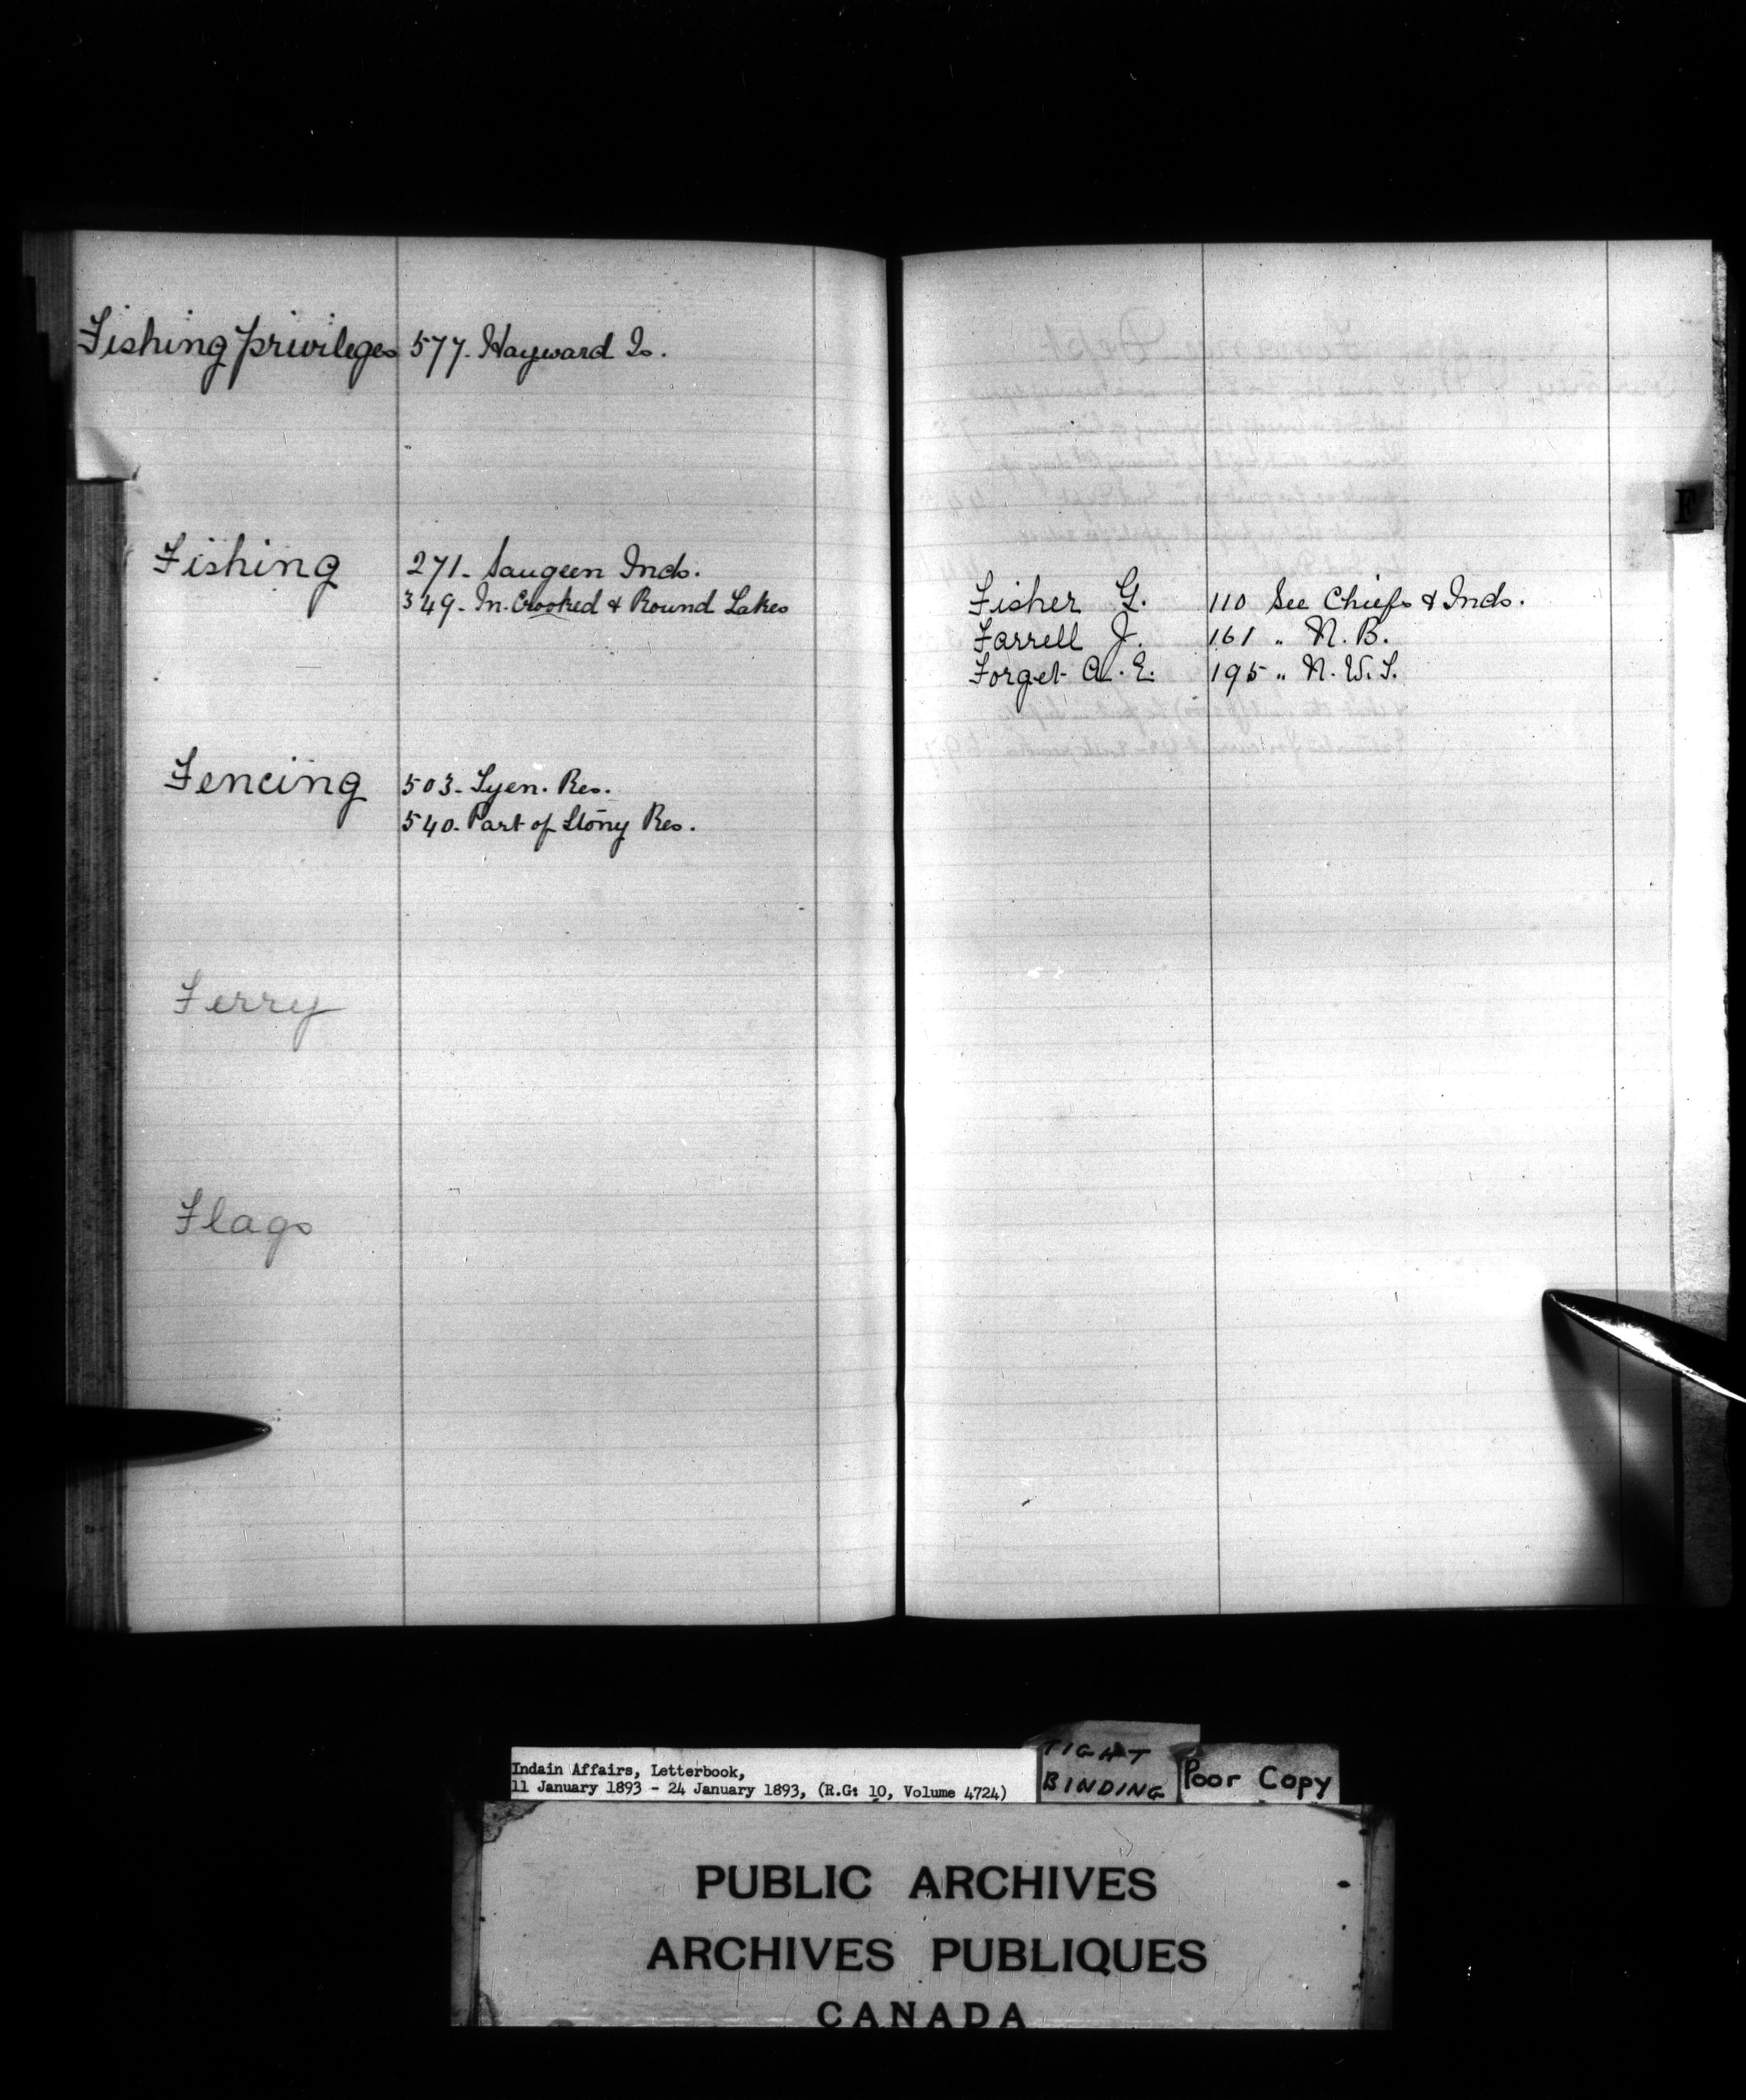 Fishing privileges 577. Hayward Is.
Fishing 271. Saugeen Inds.
349. In. Crooked & Round Lakes
Fencing 503. Tyen. Res.
540. Part of Stony Res.
Ferry
Flags
F
Fisher G. 110 See Chiefs & Inds.
Farrell J. 161 " N. B.
Forget A. E. 195 " N. W. T.
Indain Affairs, Letterbook,
11 January 1893 - 24 January 1893, (R.G: 10, Volume 4724)
TIGHT
BINDING
Poor Copy
PUBLIC ARCHIVES
ARCHIVES PUBLIQUES
CANADA